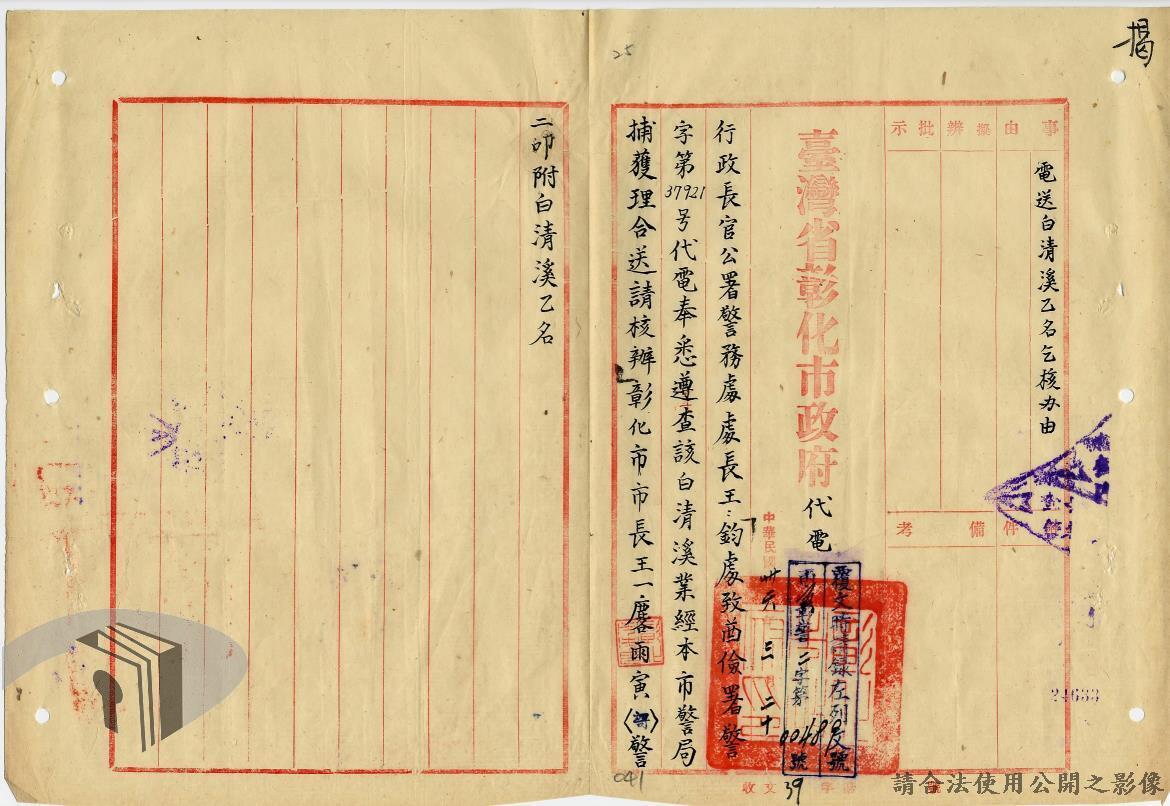 揭
25
事由
擬辦
批示
電送白清溪乙名乞核办由
件
備考
臺灣省彰化市政府
代電
中華民國
卅六
三
二十
覆文時請錄左列文號
警二字第
00488號
39
行政長官公署警務處處長王:鈞處致酉儉署警
字第37921号代電奉悉遵查該白清溪業經本市警局
捕獲理合送請核辦彰化市市長王一麐雨寅警
二叩附白清溪乙名
24633
041
收文
字
號
請合法使用公開之影像